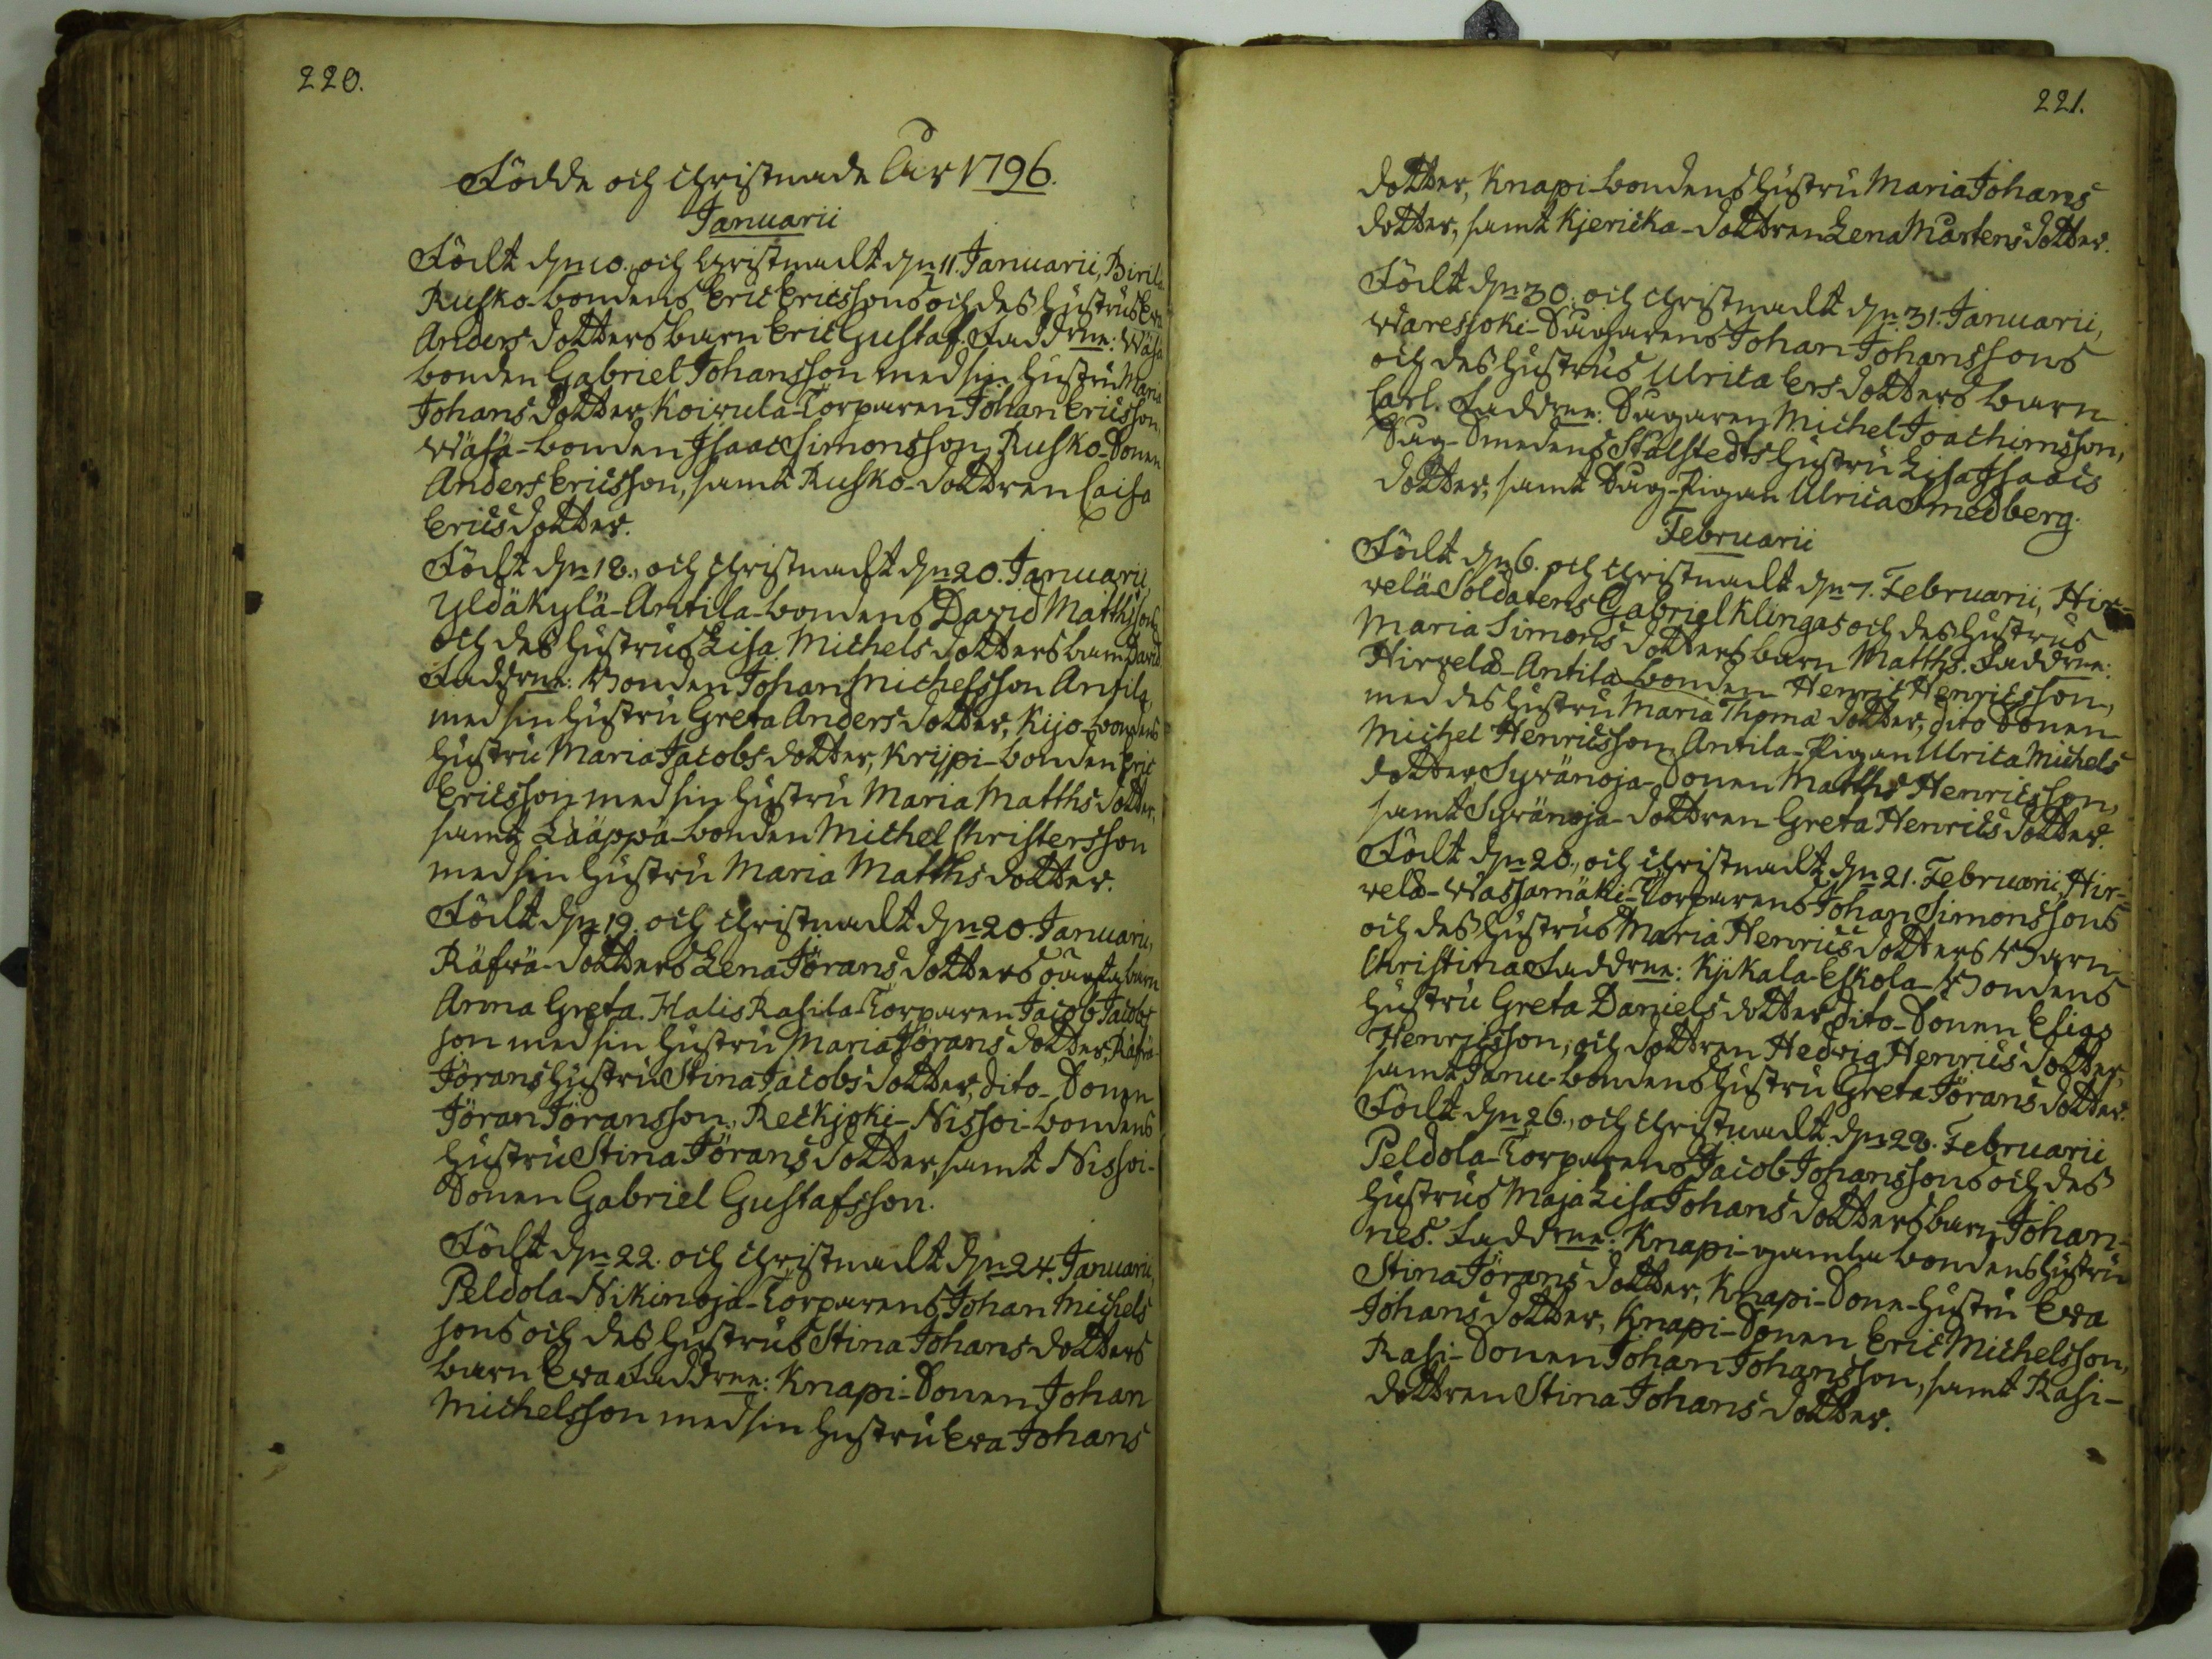 220.
Födde och Christnade Åhr 1796.
Januarii
Födt d:n 10. och Christnadt d:n 11. Januarii, Birila
Rusko-bondens Eric Ericssons och des Hustrus Eva
Anders dotters barn Eric Gustaf. Faddrne: Wäfä
bonden Gabriel Johansson med sin Hustru Maria
Johans dotter, Koivula-Torparen Johan Ericsson,
Wäfä-bonden Isaac Simonsson, Rusko-Sonen
Anders Ericsson, samt Rusko-dottren Caisa
Erics dotter.
Födt d:n 18., och Christnadt d:n 20. Januarii
Yldäkylä-Antila-bondens David Matthssons
och des Hustrus Lisa Michels dotters barn David.
Faddrne: Bonden Johan Michelsson Antila,
med sin Hustru Greta Anders dotter, Kijo-bondens
Hustru Maria Jacobs dotter, Krijpi-bonden Eric
Ericsson med sin Hustru Maria Matths dotter,
samt Lääppä-bonden Michel Christersson
med sin Hustru Maria Matths dotter.
Födt d:n 19. och Christnadt d:n 20. Januarii,
Räfvä-dotters Lena Jörans dotters oägta barn
Anna Greta. Halis Rasila-Torparen Jacob Jacobs
son med sin Hustru Maria Jörans dotter, Räfvä-
Jörans Hustru Stina Jacobs dotter, dito-Sonen
Jöran Jöransson, Reckjoki-Nissoi-bondens
Hustru Stina Jörans dotter, samt Nissoi-
Sonen Gabriel Gustafsson.
Födt d:n 22. och Christnadt d:n 24. Januarii,
Peldola-Nikinoja-Torparens Johan Michels
sons och des Hustrus Stina Johans dotters
barn Eva. Faddrne: Knapi-Sonen Johan
Michelsson med sin Hustru Eva Johans
221.
dotter, Knapi-bondens Hustru Maria Johans
dotter, samt Kjericka-dottren Lena Mårtens dotter.
Födt d:n 30. och Christnadt d:n 31. Januarii,
Waresjoki-Sagarens Johan Johanssons
och des Hustrus Ulrica Ers dotters barn
Carl. Faddrne: Sagaren Michel Joachimsson,
Sag-Smedens Stålstedts Hustru Lisa Isaacs
dotter, samt Sag-Pigan Ulrica Smedberg.
Februarii
Födt d:n 6. och Christnadt d:n 7. Februarii, Hir-
velä Soldatens Gabriel Klingas och des Hustrus
Maria Simons dotters barn Matths. Faddrne:
Hirvelä-Antila-bonden Henric Henricsson,
med des Hustru Maria Thoma dotter, dito Sonen
Michel Henricsson, Antila-Pigan Ulrica Michels
dotter, Syvänoja-Sonen Matths Henricsson,
samt Syvänoja-dottren Greta Henrics dotter.
Födt d:n 20., och Christnadt d:n 21. Februarii, Hir-
velä-Wassamäki-Torparens Johan Simonssons
och des Hustrus Maria Henrics dotters Barn
Christina. Faddrne: Kjikala-Eskola-Bondens
Hustru Greta Daniels dotter, dito-Sonen Elias
Henricsson, och dottren Hedvig Henrics dotter,
samt Janu-bondens Hustru Greta Jörans dotter.
Födt d:n 26., och Christnadt d:n 28. Februarii
Peldola-Torparens Jacob Johanssons och des
Hustrus Maja Lisa Johans dotters barn Johan-
nes. Faddrne: Knapi-gamla bondens Hustru
Stina Jörans dotter, Knapi-Sone-Hustru Eva
Johans dotter, Knapi-Sonen Eric Michelsson,
Rasi-Sonen Johan Johansson, samt Rasi-
dottren Stina Johans dotter.